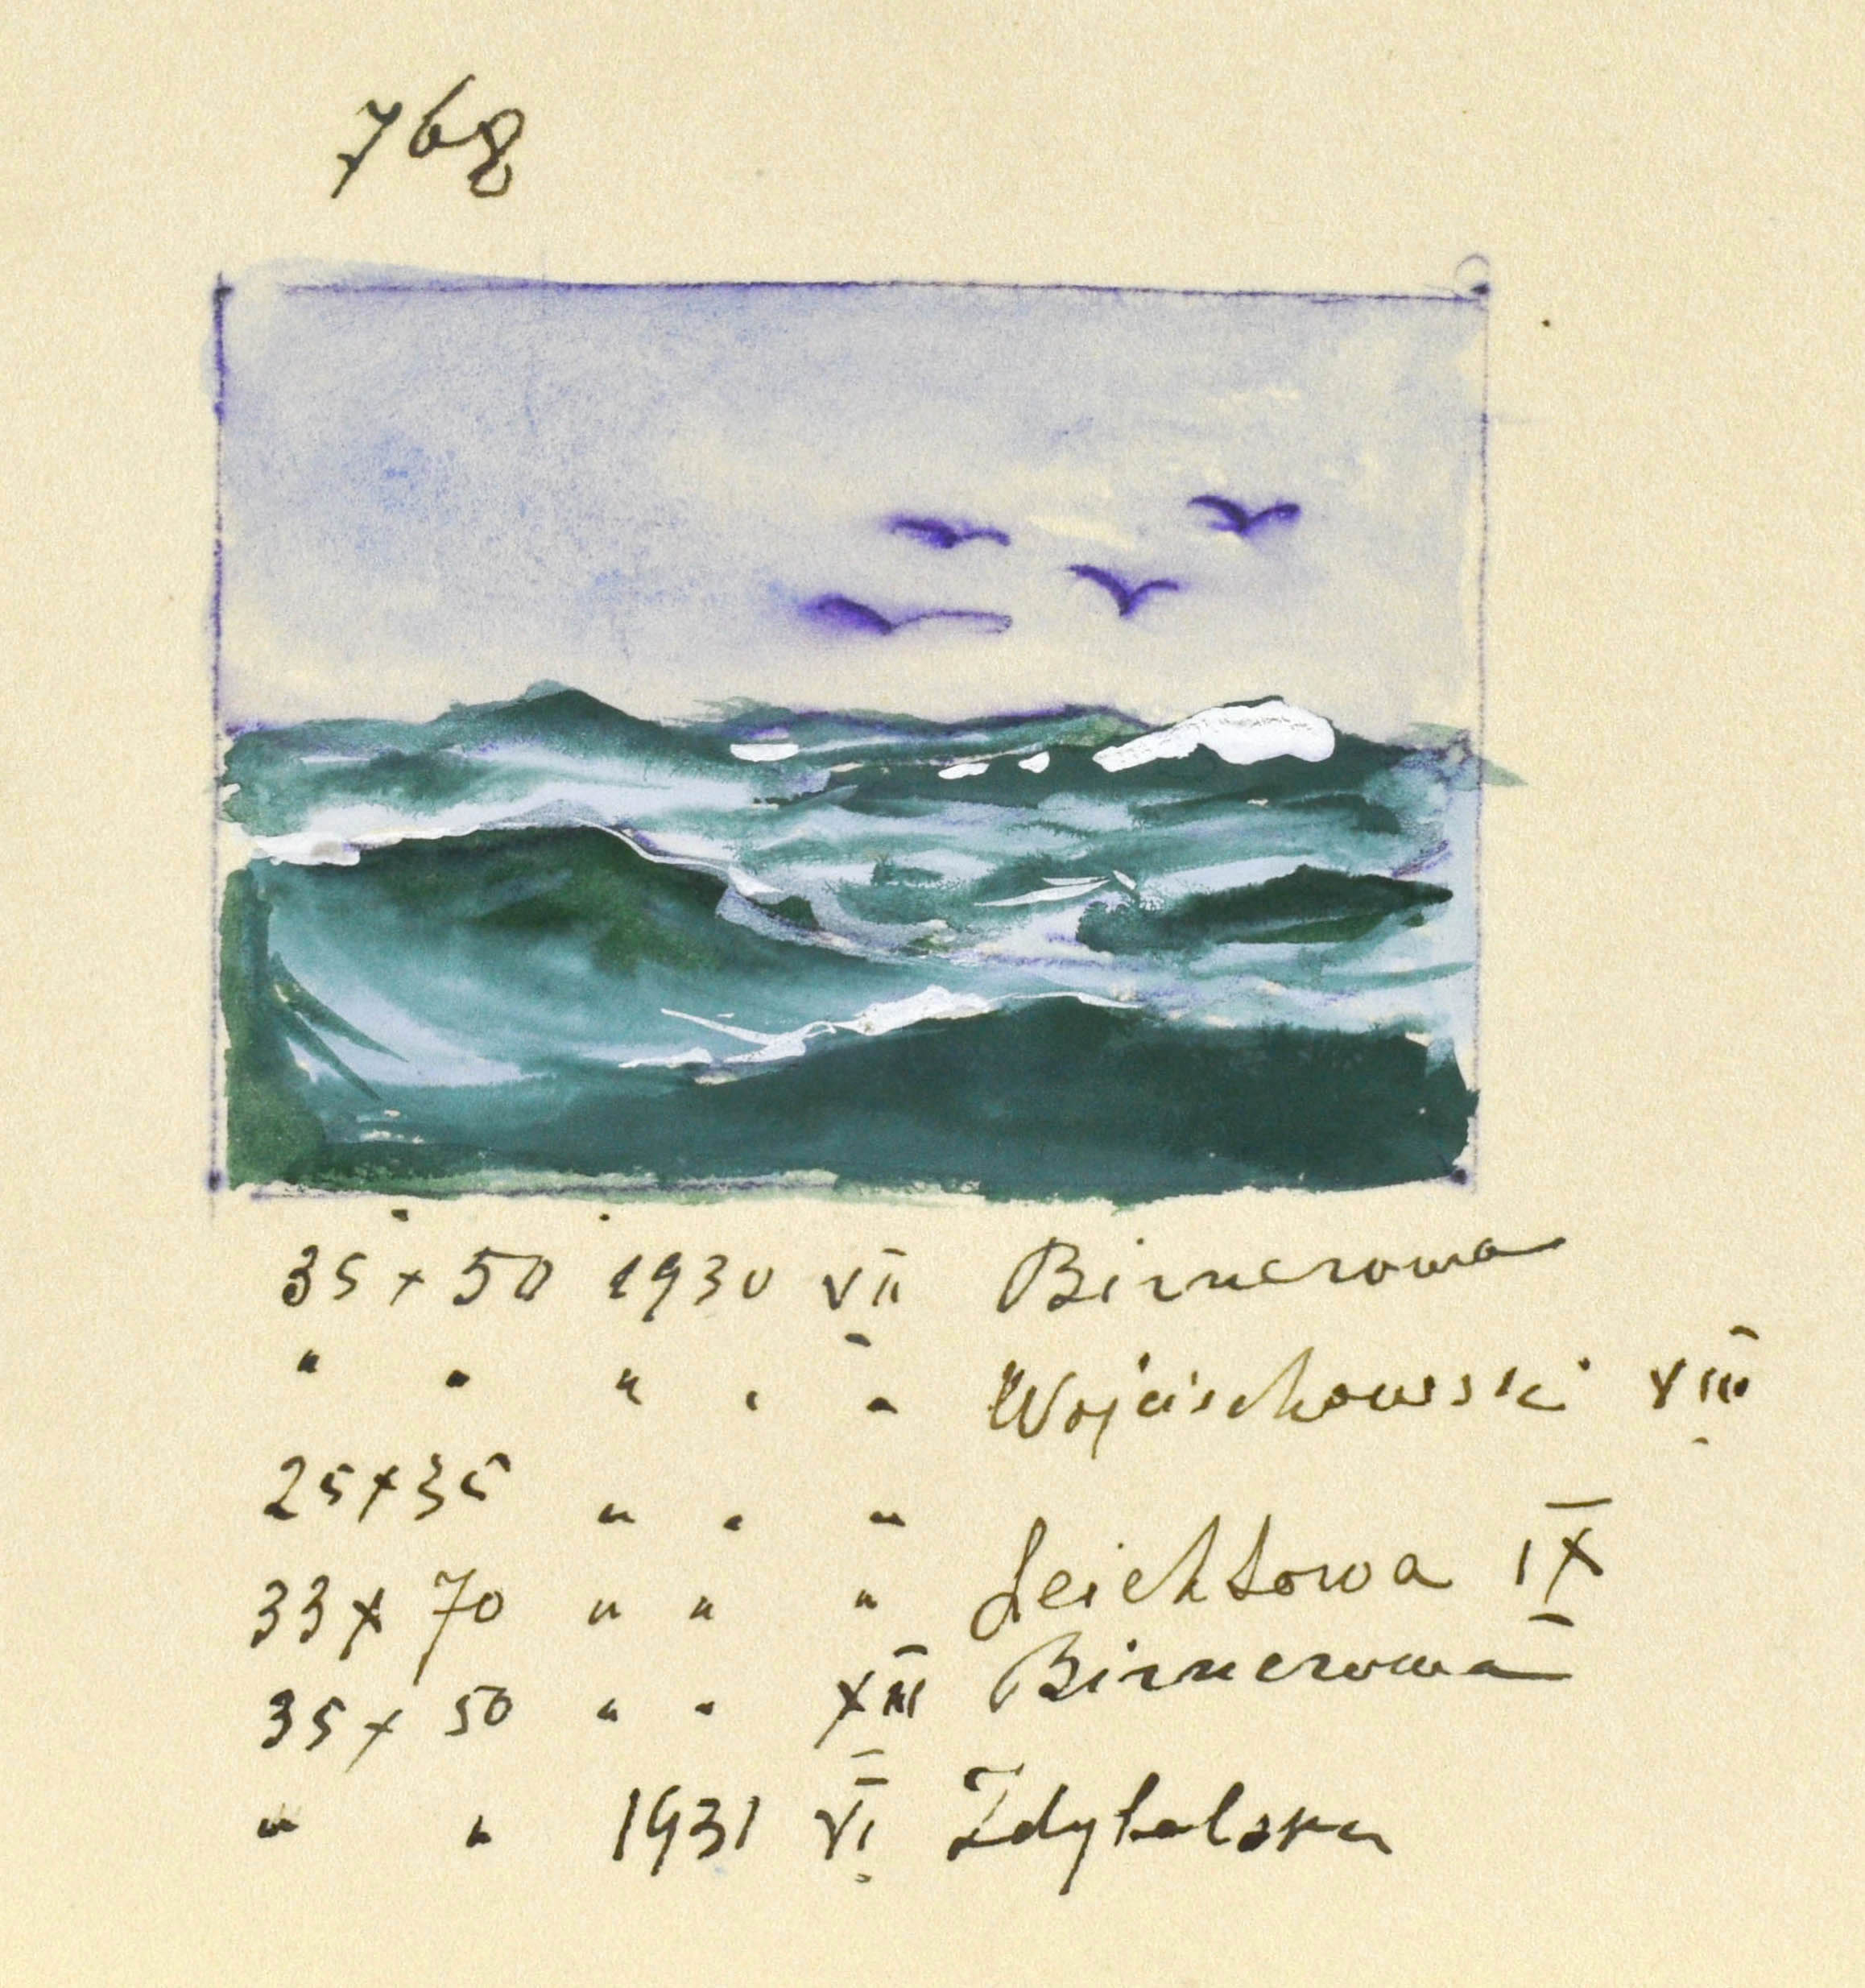 768
35 x 50 1930 VII Birnerowa
" " " " " Wojciechowski VIII
25 x 35 " " "
33 x 70 " " " Leichtowa IX
35 x 50 " " XII Birnerowa
" " 1931 VI